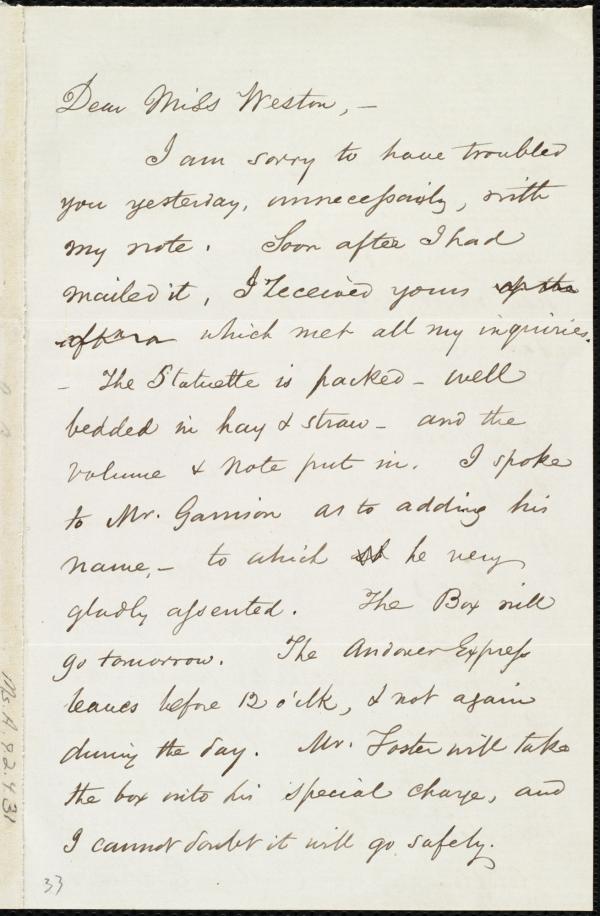 Dear Miss Weston, –
I am sorry to have troubled
you yesterday, unnecessarily, with
my note. Soon after I had
mailed it, I received yours
which met all my inquiries.
– The Statuette is packed – well
bedded in hay & straw – and the
volume & note put in. I spoke
to Mr. Garrison as to adding his
name, – to which he very
gladly assented. The Box will
go tomorrow. The Andover Express
leaves before 12 o'clk, & not again
during the day. Mr. Foster will take
the box into his special charge, and
I cannot doubt it will go safely.
33
Ms.A.9.2.4.31